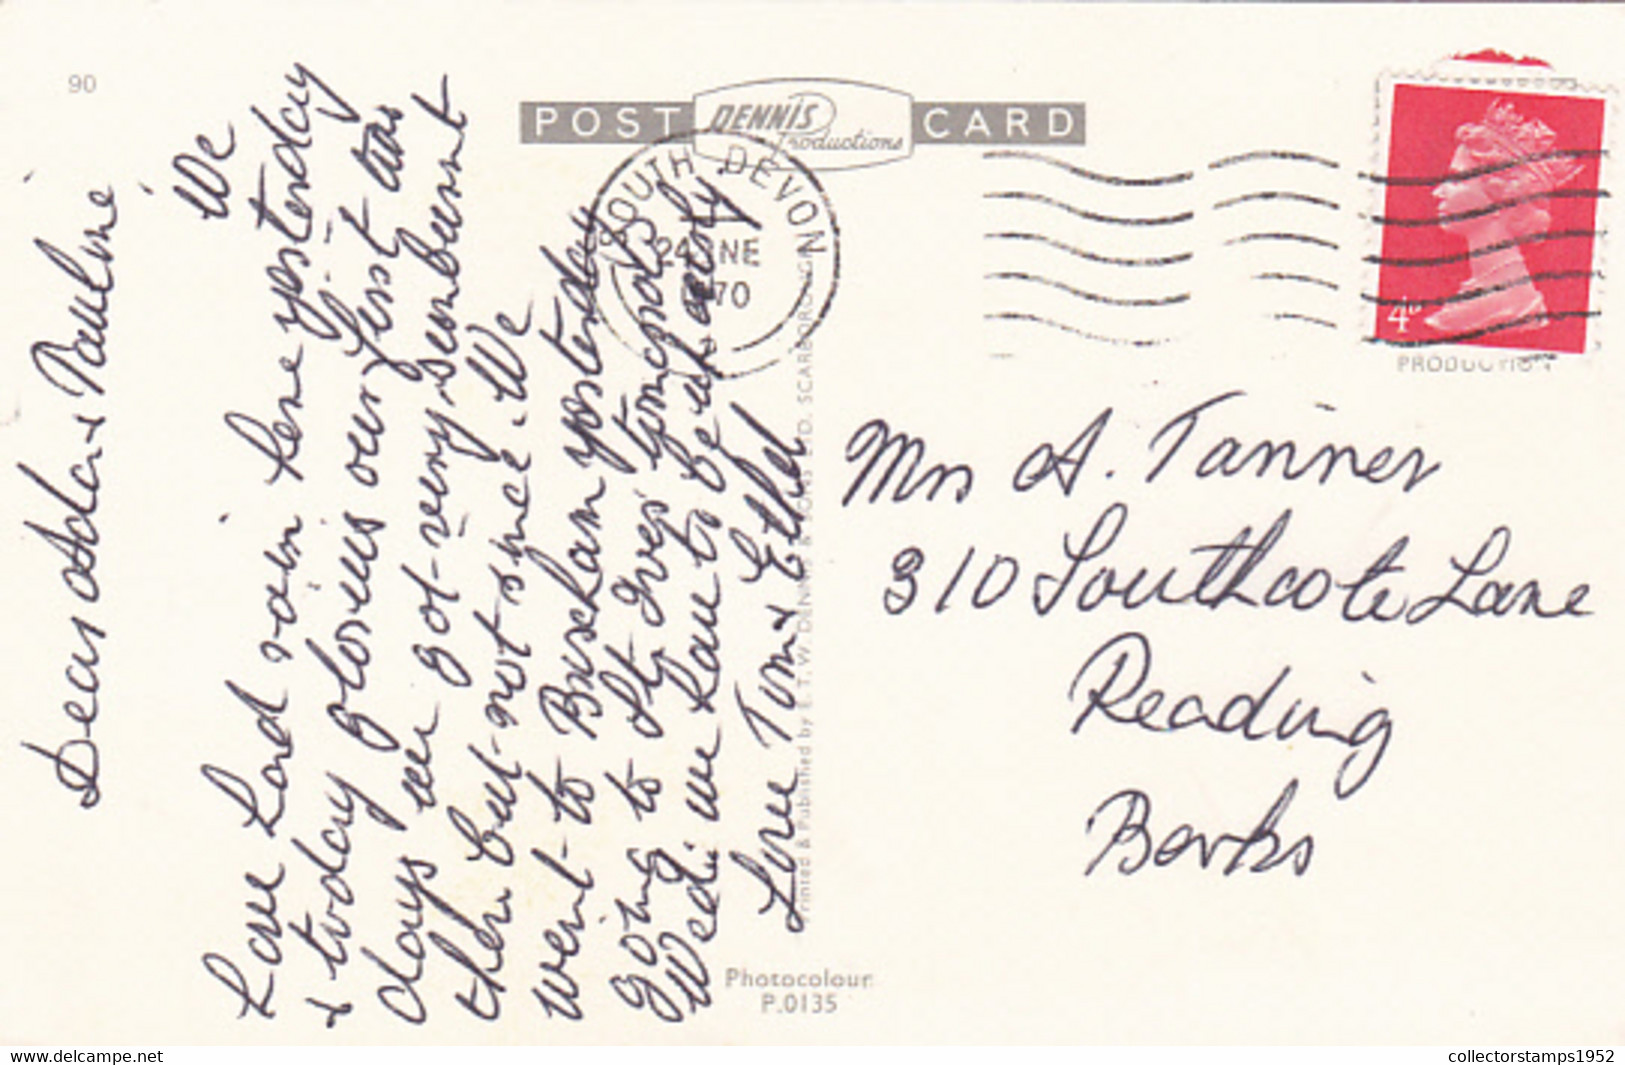 90
POST DENNIS Productions CARD
SOUTH DEVON
24 NE
1970
4D
PRODUCTION
Dear Ada & Pauline
We
have had rain here yesterday
& today glorious our first two
days we got very sunburnt
then but not since. We
went to Brixham yesterday
going to St Ives tomorrow
Wed. we have to be up early
Love Tim & Ethel
Printed & Published by E. T. W. DENNIS & SONS LTD. SCARBOROUGH
Photocolour
P.0135
Mrs A. Tanner
310 Southcote Lane
Reading
Berks
delcampe.net
collectorstamps1952